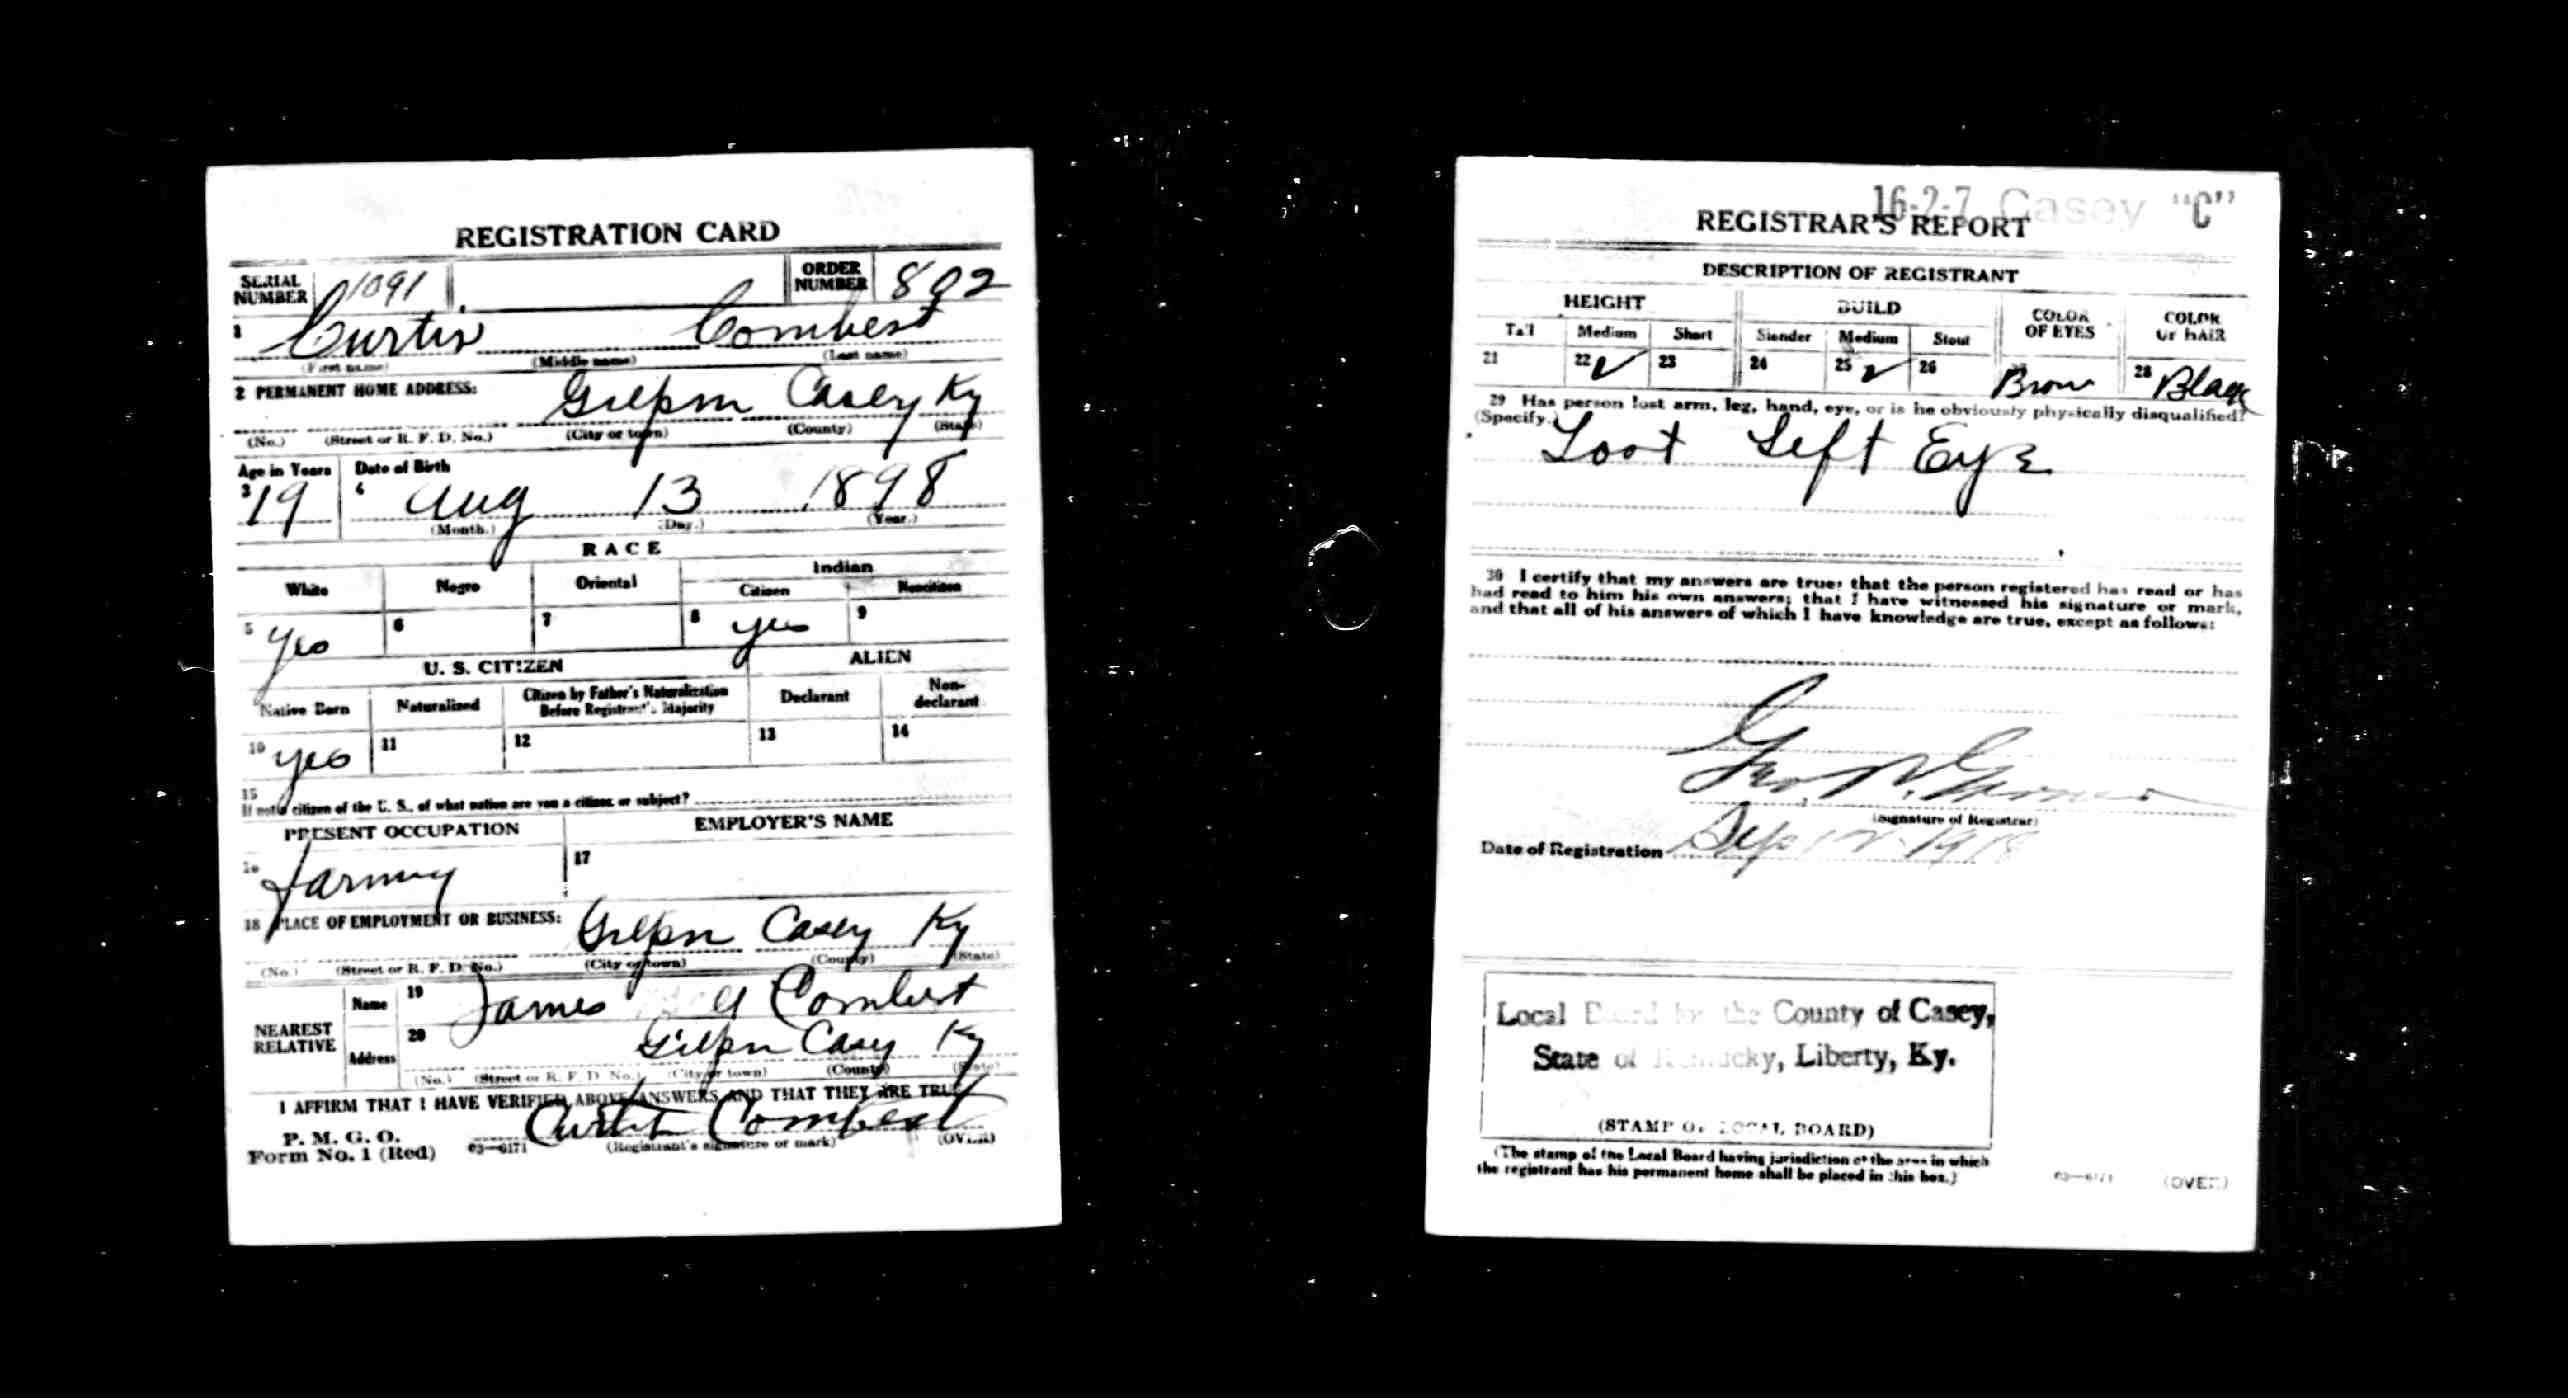 REGISTRATION CARD
SERIAL NUMBER 1091 ORDER NUMBER 892
1 Curtis Combest
(First name) (Middle name) (Last name)
2 PERMANENT HOME ADDRESS:
Gilpin Casey Ky
(No.) (Street or R. F. D. No.) (City or town) (County) (State)
Age in Years Date of Birth
3 19 4 Aug 13 1898
(Month.) (Day.) (Year.)
RACE
White Negro Oriental Indian
Citizen Noncitizen
5 yes 6 7 8 yes 9
U. S. CITIZEN ALIEN
Native Born Naturalized Citizen by Father's Naturalization Before Registrant's Majority Declarant Non-declarant
10 yes 11 12 13 14
15
If not a citizen of the U. S., of what nation are you a citizen or subject?
PRESENT OCCUPATION EMPLOYER'S NAME
16 Farming 17
18 PLACE OF EMPLOYMENT OR BUSINESS:
Gilpin Casey Ky
(No.) (Street or R. F. D. No.) (City or town) (County) (State)
NEAREST RELATIVE
Name 19 James Combest
Address 20 Gilpin Casey Ky
(No.) (Street or R. F. D. No.) (City or town) (County) (State)
I AFFIRM THAT I HAVE VERIFIED ABOVE ANSWERS AND THAT THEY ARE TRUE
P. M. G. O.
Form No. 1 (Red) 03—6171 Curtis Combest
(Registrant's signature or mark) (OVER)
16-2-7 Casey "C"
REGISTRAR'S REPORT
DESCRIPTION OF REGISTRANT
HEIGHT BUILD COLOR OF EYES COLOR OF HAIR
Tall Medium Short Slender Medium Stout
21 22 ✓ 23 24 25 ✓ 26 27 Brown 28 Black
29 Has person lost arm, leg, hand, eye, or is he obviously physically disqualified?
(Specify.) Loot Left Eye
30 I certify that my answers are true; that the person registered has read or has
had read to him his own answers; that I have witnessed his signature or mark,
and that all of his answers of which I have knowledge are true, except as follows:
Geo.
(Signature of Registrar)
Date of Registration Sep 12 1918
Local Board for the County of Casey,
State of Kentucky, Liberty, Ky.
(STAMP OF LOCAL BOARD)
(The stamp of the Local Board having jurisdiction of the area in which
the registrant has his permanent home shall be placed in this box.)
03—6171 (OVER)